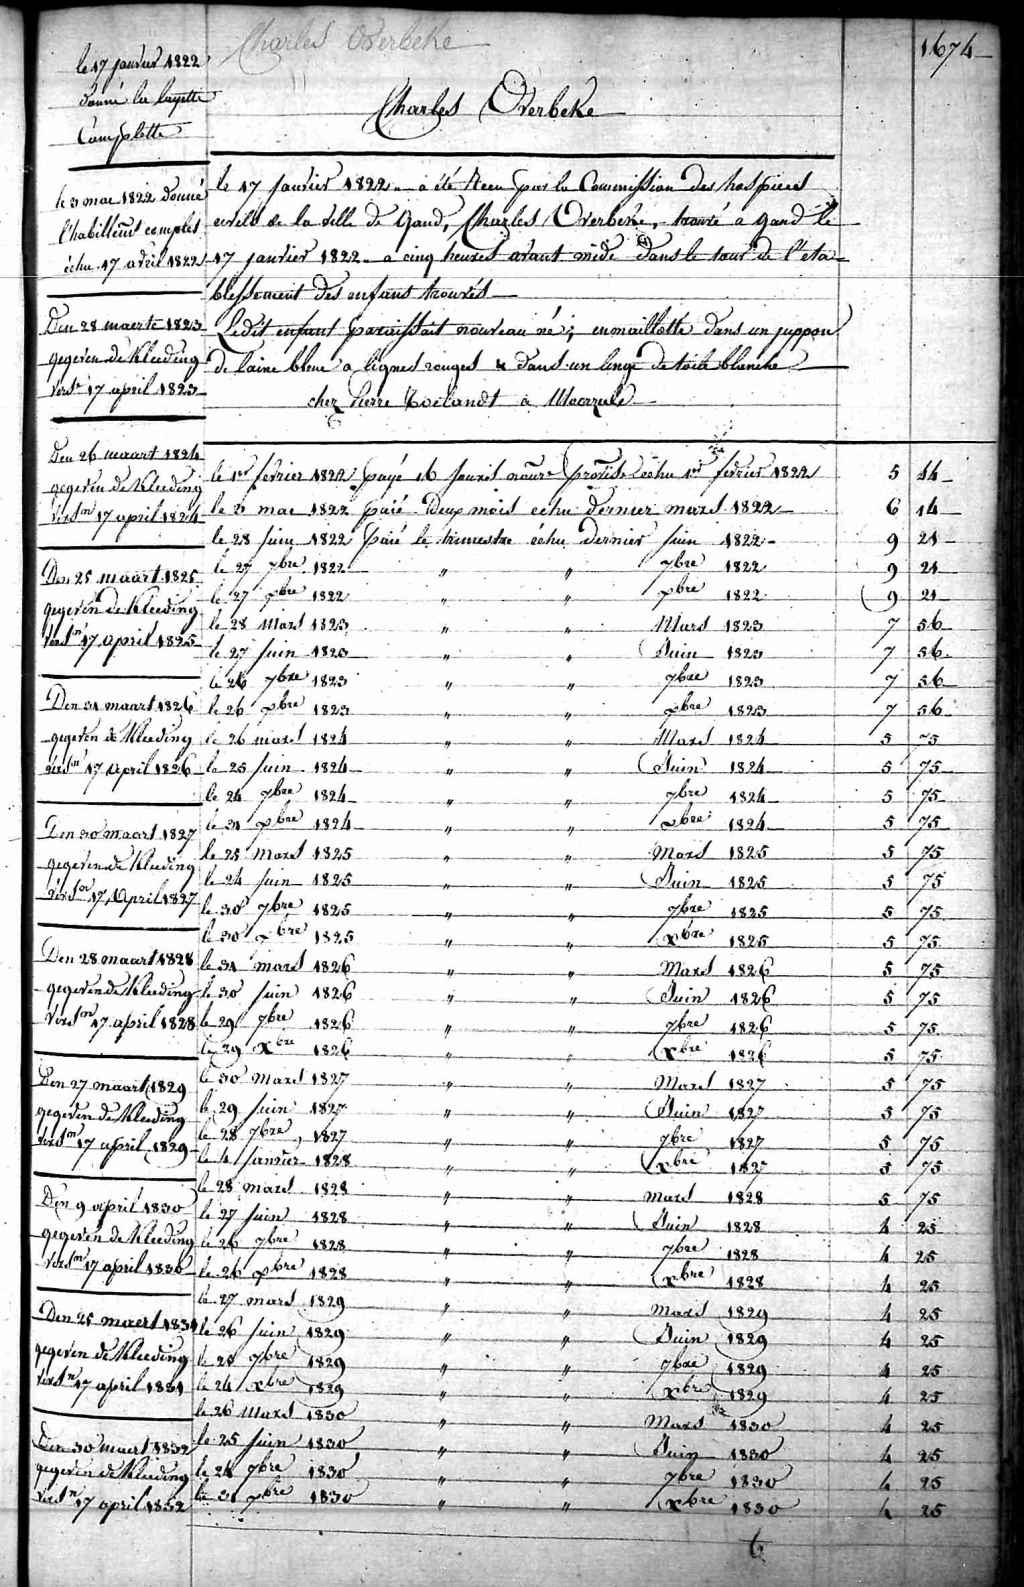 Charles Overbeke
1674
le 17 janvier 1822
donné la layette
Complette
Charles Overbeke
le 3 mai 1822 donné
l'habillemt complet
échu 17 avril 1822
Den 28 maerte 1823
gegeven de Kleeding
verst 17 april 1823
Den 26 maart 1824
gegeven de Kleeding
versn 17 april 1824
Den 25 maart 1825
gegeven de Kleeding
versn 17 april 1825
Den 31 maart 1826
gegeven de Kleeding
versn 17 April 1826
Den 30 maart 1827
gegeven de Kleeding
17 April 1827
Den 28 maart 1828
gegeven de Kleeding
versn 17 april 1828
Den 27 maart 1829
gegeven de Kleeding
versn 17 april 1829
Den 9 april 1830
gegeven de Kleeding
versn 17 april 1830
Den 25 maert 1831
gegeven de Kleeding
versn 17 april 1831
Den 30 maert 1832
gegeven de Kleeding
versn 17 april 1832
le 17 janvier 1822 a été Recu par la Commission des hospices
civils de la ville de Gand, Charles Overbeke, trouvé a gand le
17 janvier 1822 a cinq heures avant midi dans le tour de l'éta
blissement des enfans trouvés
Ledit enfant paraissait nouveau né; enmaillotté dans un juppon
de laine bleue a lignes rouges & dans un linge de toile blanche
chez Pierre Roelandt à
le 1er fevrier 1822 payé 16 jours nourre provisre échu 1er fevrier 1822 5 44
le 3 mai 1822 paié Deux mois échu dernier mars 1822 6 14
le 28 juin 1822 paié le trimestre échu dernier juin 1822 9 21
le 27 7bre 1822 " " 7bre 1822 9 21
le 27 xbre 1822 " " xbre 1822 9 21
le 28 Mars 1823 " " Mars 1823 7 56
le 27 juin 1823 " " Juin 1823 7 56
le 26 7bre 1823 " " 7bre 1823 7 56
le 26 xbre 1823 " " xbre 1823 7 56
le 26 mars 1824 " " Mars 1824 5 75
le 25 juin 1824 " " Juin 1824 5 75
le 24 7bre 1824 " " 7bre 1824 5 75
le 31 xbre 1824 " " xbre 1824 5 75
le 25 Mars 1825 " " Mars 1825 5 75
le 24 juin 1825 " " Juin 1825 5 75
le 30 7bre 1825 " " 7bre 1825 5 75
le 30 xbre 1825 " " xbre 1825 5 75
le 31 mars 1826 " " Mars 1826 5 75
le 30 juin 1826 " " Juin 1826 5 75
le 29 7bre 1826 " " 7bre 1826 5 75
le 29 Xbre 1826 " " Xbre 1826 5 75
le 30 Mars 1827 " " Mars 1827 5 75
le 29 juin 1827 " " Juin 1827 5 75
le 28 7bre 1827 " " 7bre 1827 5 75
le 4 janvier 1828 " " xbre 1827 5 75
le 28 mars 1828 " " Mars 1828 5 75
le 27 juin 1828 " " Juin 1828 4 25
le 26 7bre 1828 " " 7bre 1828 4 25
le 26 xbre 1828 " " Xbre 1828 4 25
le 27 mars 1829 " " Mars 1829 4 25
le 26 juin 1829 " " Juin 1829 4 25
le 25 7bre 1829 " " 7bre 1829 4 25
le 24 xbre 1829 " " Xbre 1829 4 25
le 26 Mars 1830 " " Mars 1830 4 25
le 25 juin 1830 " " Juin 1830 4 25
le 24 7bre 1830 " " 7bre 1830 4 25
le 31 xbre 1830 " " Xbre 1830 4 25